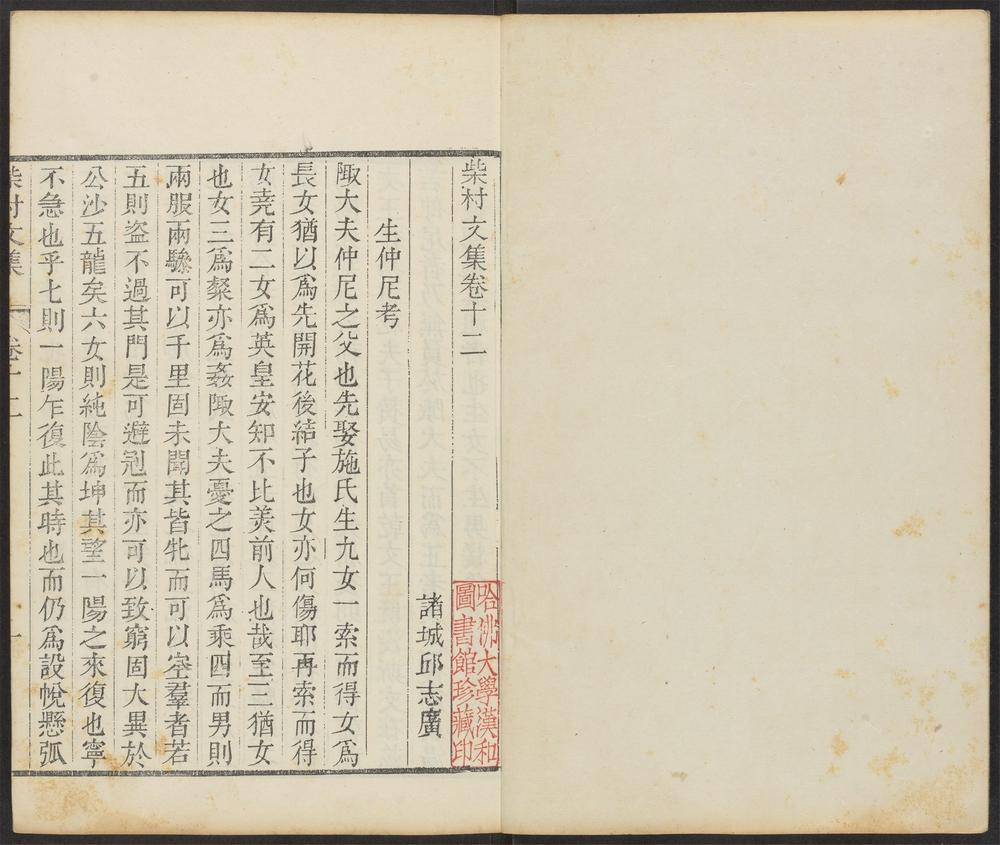 柴村文集卷十二
諸城邱志廣
生仲尼考
陬大夫仲尼之父也先娶施氏生九女一索而得女爲
長女猶以爲先開花後結子也女亦何傷耶再索而得
女堯有二女爲英皇安知不比羙前人也哉至三猶女
也女三爲粲亦爲姦陬大夫憂之四馬爲乘四而男則
兩服兩驂可以千里固未聞其皆牝而可以空羣者若
五則盗不過其門是可避冦而亦可以致窮固大異於
公沙五龍矣六女則純陰爲坤其望一陽之來復也寧
不急也乎七則一陽乍復此其時也而仍爲設帨懸弧
柴村文集 卷十二 一
哈佛大學漢和
圖書館珍藏印